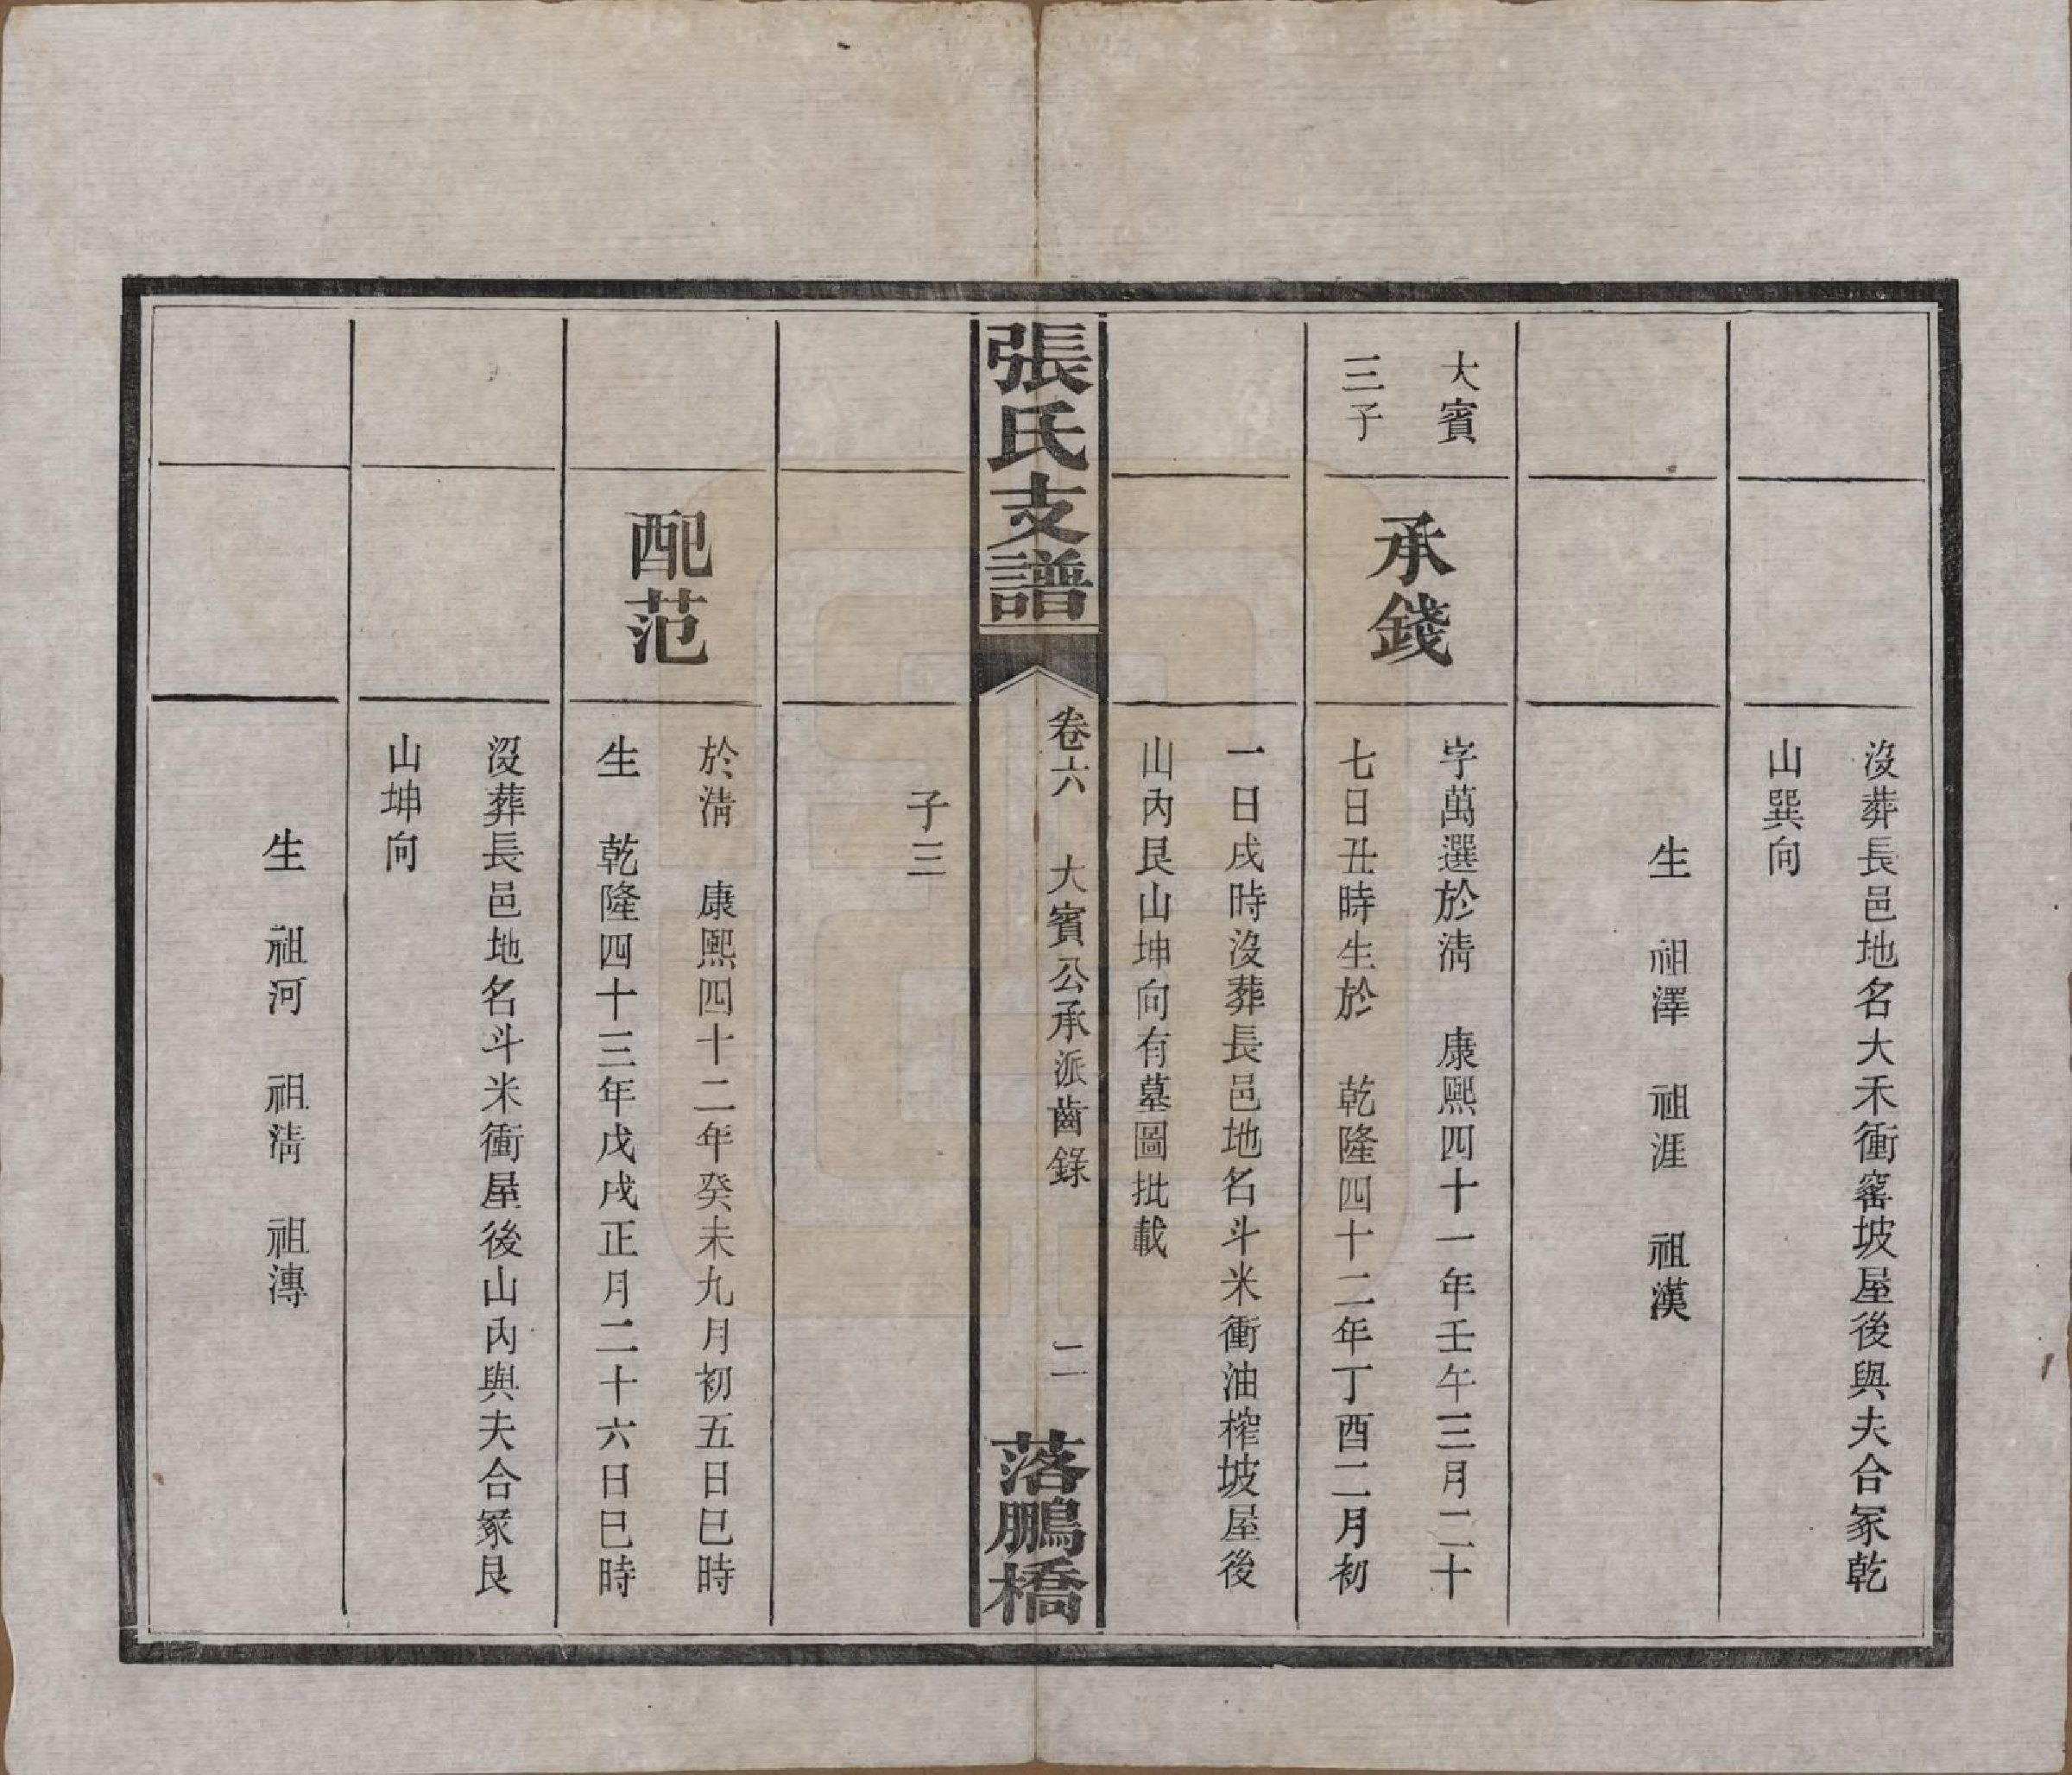 沒葬長邑地名大禾衝窰坡屋後與夫合冢乾
山巽向
生　祖澤　祖涯　祖漢
大賓
三子
承錢
字萬選於淸　康熙四十一年壬午三月二十
七日丑時生於　乾隆四十二年丁酉二月初
一日戌時沒葬長邑地名斗米衝油榨坡屋後
山內艮山坤向有墓圖批載
張氏支譜
卷六　大賓公承派齒錄　二
落鵬橋
子三
配范
於淸　康熙四十二年癸未九月初五日巳時
生　乾隆四十三年戊戌正月二十六日巳時
沒葬長邑地名斗米衝屋後山內與夫合冢艮
山坤向
生　祖河　祖淸　祖漙